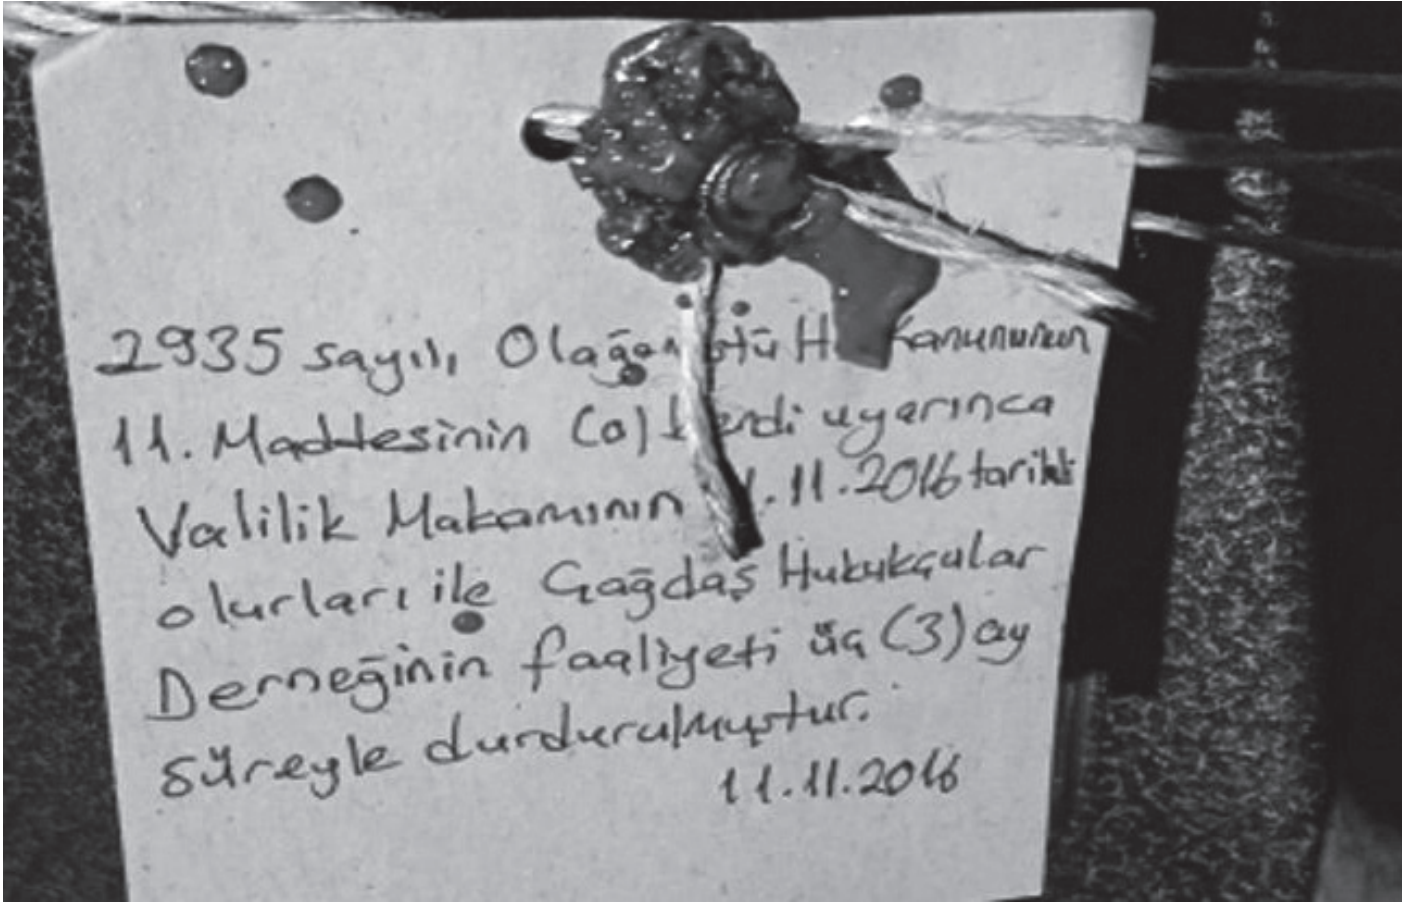 2935 sayılı, Olağanüstü Kanununun
11. Maddesinin (o) bendi uyarınca
Valilik Makamının .11.2016 tarihli
olurları ile Çağdaş Hukukçular
Derneğinin faaliyeti üç (3) ay
süreyle durdurulmuştur.
11.11.2016